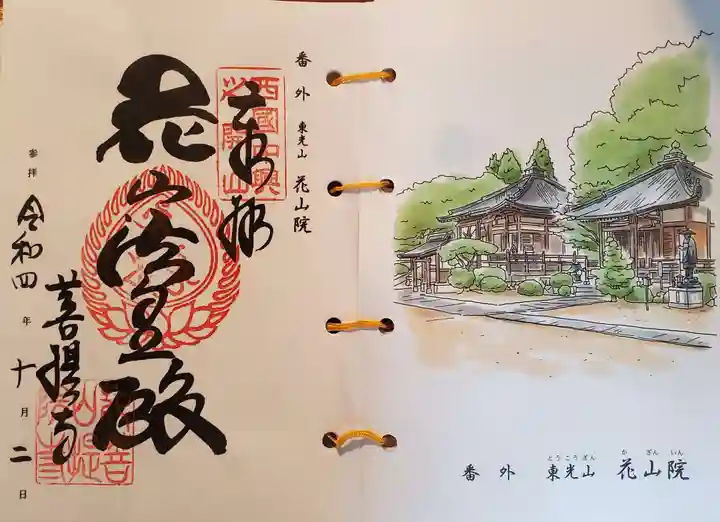 番外 東光山 花山院
奉拝
西國中興
花山法皇殿
菩提寺
参拝 令和四年十月二日
とうこうざん か ざん いん
番外 東光山 花山院